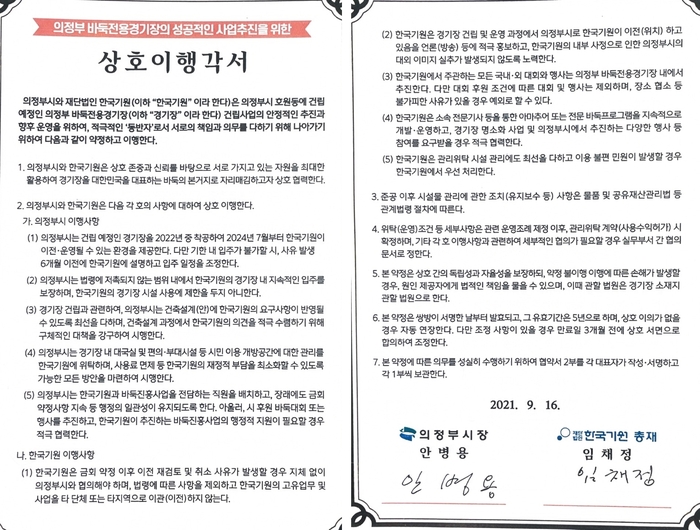 의정부 바둑전용경기장의 성공적인 사업추진을 위한
상호이행각서
의정부시와 재단법인 한국기원(이하 “한국기원” 이라 한다)은 의정부시 호원동에 건립
예정인 의정부 바둑전용경기장(이하 “경기장” 이라 한다) 건립사업의 안정적인 추진과
향후 운영을 위하여, 적극적인 ‘동반자’로서 서로의 책임과 의무를 다하기 위해 나아가기
위하여 다음과 같이 약정하고 이행한다.
1. 의정부시와 한국기원은 상호 존중과 신뢰를 바탕으로 서로 가지고 있는 자원을 최대한
활용하여 경기장을 대한민국을 대표하는 바둑의 본거지로 자리매김하고자 상호 협력한다.
2. 의정부시와 한국기원은 다음 각 호의 사항에 대하여 상호 이행한다.
가. 의정부시 이행사항
(1) 의정부시는 건립 예정인 경기장을 2022년 중 착공하여 2024년 7월부터 한국기원이
이전·운영될 수 있는 환경을 제공한다. 다만 기한 내 입주가 불가할 시, 사유 발생
6개월 이전에 한국기원에 설명하고 입주 일정을 조정한다.
(2) 의정부시는 법령에 저촉되지 않는 범위 내에서 한국기원의 경기장 내 지속적인 입주를
보장하며, 한국기원의 경기장 시설 사용에 제한을 두지 아니한다.
(3) 경기장 건립과 관련하여, 의정부시는 건축설계(안)에 한국기원의 요구사항이 반영될
수 있도록 최선을 다하며, 건축설계 과정에서 한국기원의 의견을 적극 수렴하기 위해
구체적인 대책을 강구하여 시행한다.
(4) 의정부시는 경기장 내 대국실 및 편의·부대시설 등 시민 이용 개방공간에 대한 관리를
한국기원에 위탁하며, 사용료 면제 등 한국기원의 재정적 부담을 최소화할 수 있도록
가능한 모든 방안을 마련하여 시행한다.
(5) 의정부시는 한국기원과 바둑진흥사업을 전담하는 직원을 배치하고, 장래에도 금회
약정사항 지속 등 행정의 일관성이 유지되도록 한다. 아울러, 시 후원 바둑대회 또는
행사를 추진하고, 한국기원이 추진하는 바둑진흥사업의 행정적 지원이 필요할 경우
적극 협력한다.
나. 한국기원 이행사항
(1) 한국기원은 금회 약정 이후 이전 재검토 및 취소 사유가 발생할 경우 지체 없이
의정부시와 협의해야 하며, 법령에 따른 사항을 제외하고 한국기원의 고유업무 및
사업을 타 단체 또는 타지역으로 이관(이전)하지 않는다.
(2) 한국기원은 경기장 건립 및 운영 과정에서 의정부시로 한국기원이 이전(위치) 하고
있음을 언론(방송) 등에 적극 홍보하고, 한국기원의 내부 사정으로 인한 의정부시의
대외 이미지 실추가 발생되지 않도록 노력한다.
(3) 한국기원에서 주관하는 모든 국내·외 대회와 행사는 의정부 바둑전용경기장 내에서
추진한다. 다만 대회 후원 조건에 따른 대회 및 행사는 제외하며, 장소 협소 등
불가피한 사유가 있을 경우 예외로 할 수 있다.
(4) 한국기원은 소속 전문기사 등을 통한 아마추어 또는 전문 바둑프로그램을 지속적으로
개발·운영하고, 경기장 명소화 사업 및 의정부시에서 추진하는 다양한 행사 등
참여를 요구받을 경우 적극 협력한다.
(5) 한국기원은 관리위탁 시설 관리에도 최선을 다하고 이용 불편 민원이 발생할 경우
한국기원에서 우선 처리한다.
3. 준공 이후 시설물 관리에 관한 조치(유지보수 등) 사항은 물품 및 공유재산관리법 등
관계법령 절차에 따른다.
4. 위탁(운영)조건 등 세부사항은 관련 운영조례 제정 이후, 관리위탁 계약(사용수익허가) 시
확정하며, 기타 각 호 이행사항과 관련하여 세부적인 협의가 필요할 경우 실무부서 간 협의
문서로 정한다.
5. 본 약정은 상호 간의 독립성과 자율성을 보장하되, 약정 불이행 이행에 따른 손해가 발생할
경우, 원인 제공자에게 법적인 책임을 물을 수 있으며, 이때 관할 법원은 경기장 소재지
관할 법원으로 한다.
6. 본 약정은 쌍방이 서명한 날부터 발효되고, 그 유효기간은 5년으로 하며, 상호 이의가 없을
경우 자동 연장한다. 다만 조정 사항이 있을 경우 만료일 3개월 전에 상호 서면으로
합의하여 조정한다.
7. 본 약정에 따른 의무를 성실히 수행하기 위하여 협약서 2부를 각 대표자가 작성·서명하고
각 1부씩 보관한다.
2021. 9. 16.
의정부시장
안 병 용
안 병 용
재단법인 한국기원 총재
임 채 정
임 채 정